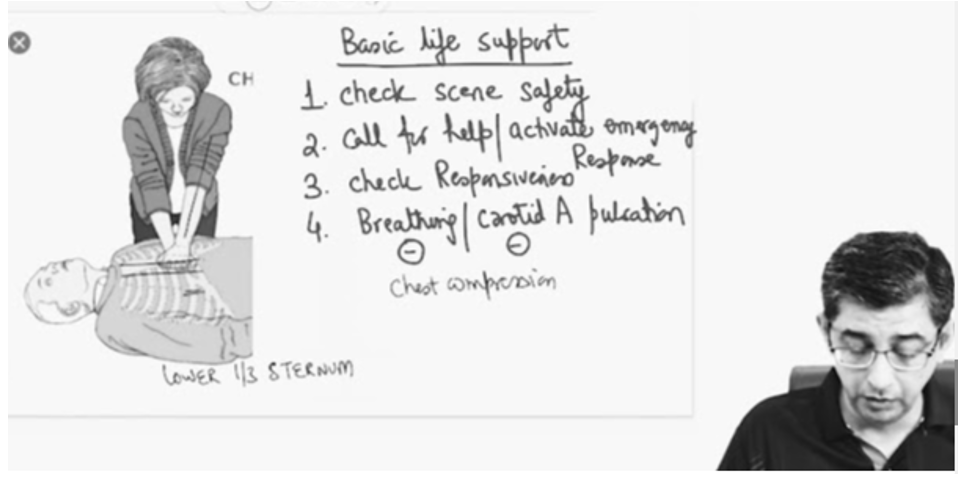 Basic life support
CH
1. check scene safety
2. Call for help/activate emergency
Response
3. check Responsiveness
4. Breathing/carotid A pulsation
⊖ ⊖
Chest compression
LOWER 1/3 STERNUM